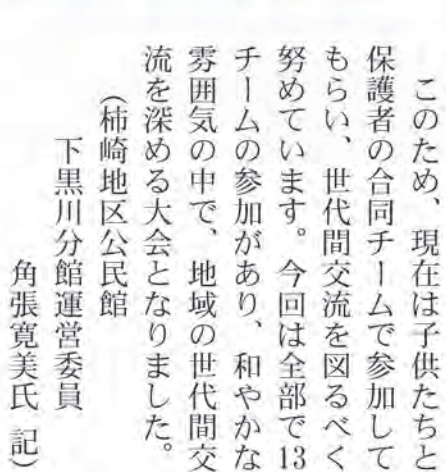 このため、現在は子供たちと
保護者の合同チームで参加して
もらい、世代間交流を図るべく
努めています。今回は全部で13
チームの参加があり、和やかな
雰囲気の中で、地域の世代間交
流を深める大会となりました。
（柿崎地区公民館
下黒川分館運営委員
角張寛美氏 記）